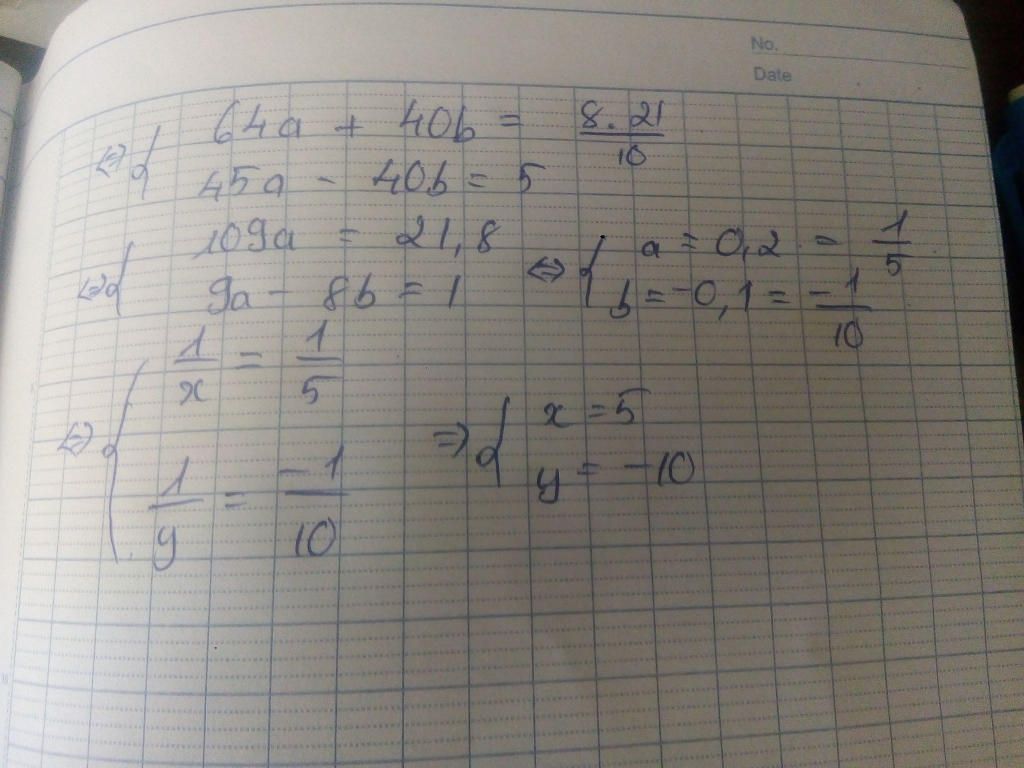 No.
Date
⇔ { 64a + 40b = 8.21/10
45a - 40b = 5
⇔ { 109a = 21,8
9a - 8b = 1
⇔ { a = 0,2 = 1/5
b = -0,1 = -1/10
⇔ { 1/x = 1/5
1/y = -1/10
⇒ { x = 5
y = -10